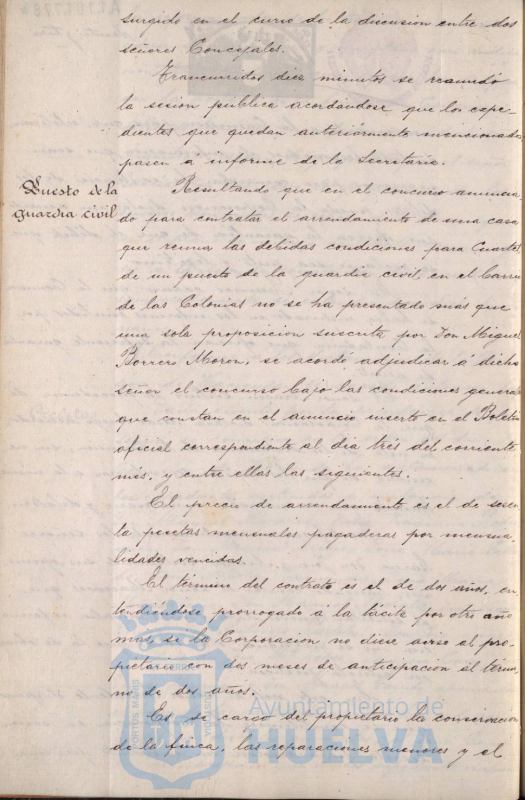 surgido en el curso de la discusion entre dos
señores Concejales.
Trancurridos diez minutos se reanudó
la sesion publica acordándose que los expe-
dientes que quedan anteriormente mencionados
pasen a informe de la Secretaria.
Puesto de la
guardia civil
Resultando que en el concurso anuncia-
do para contratar el arrendamiento de una casa
que reuna las debidas condiciones para Cuartel
de un puesto de la guardia civil en el Barrio
de las Colonias no se ha presentado más que
una sola proposicion suscrita por Don Miguel
Borrero Moron, se acordó adjudicar á dicho
señor el concurso bajo las condiciones generales
que constan en el anuncio inserto en el Boletin
oficial correspondiente al dia trés del corriente
mes, y entre ellas las siguientes.
El precio de arrendamiento es el de sesen
ta pesetas mensuales pagaderas por mensua-
lidades vencidas.
El término del contrato es el de dos años, en
tendiéndose prorrogado á la tácita por otro año
mas, si la Corporacion no diese aviso al pro-
pietario con dos meses de anticipacion al térmi
no de dos años.
Es de cargo del propietario la conservacion
de la finca, las reparaciones menores y el
Ayuntamiento de
HUELVA
PORTUS MARIS